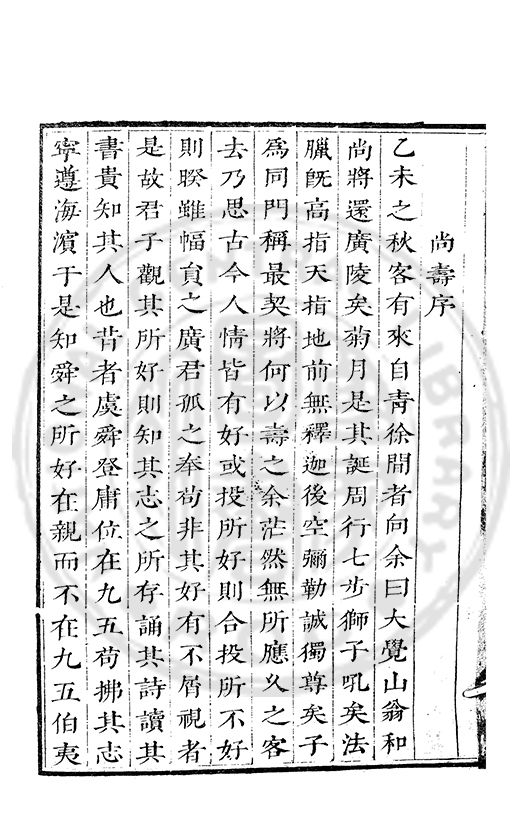 尚壽序
乙未之秋客有來自青徐間者向余曰大覺山翁和
尚將還廣陵矣菊月是其誕周行七步獅子吼矣法
臘旣高指天指地前無釋迦後空彌勒誠獨尊矣子
為同門稱最契將何以壽之余茫然無所應久之客
去乃思古今人情皆有好或投所好則合投所不好
則暌雖幅員之廣君孤之奉苟非其好有不屑視者
是故君子觀其所好則知其志之所存誦其詩讀其
書貴知其人也昔者虞舜登庸位在九五苟拂其志
寧遵海濱于是知舜之所好在親而不在九五伯夷